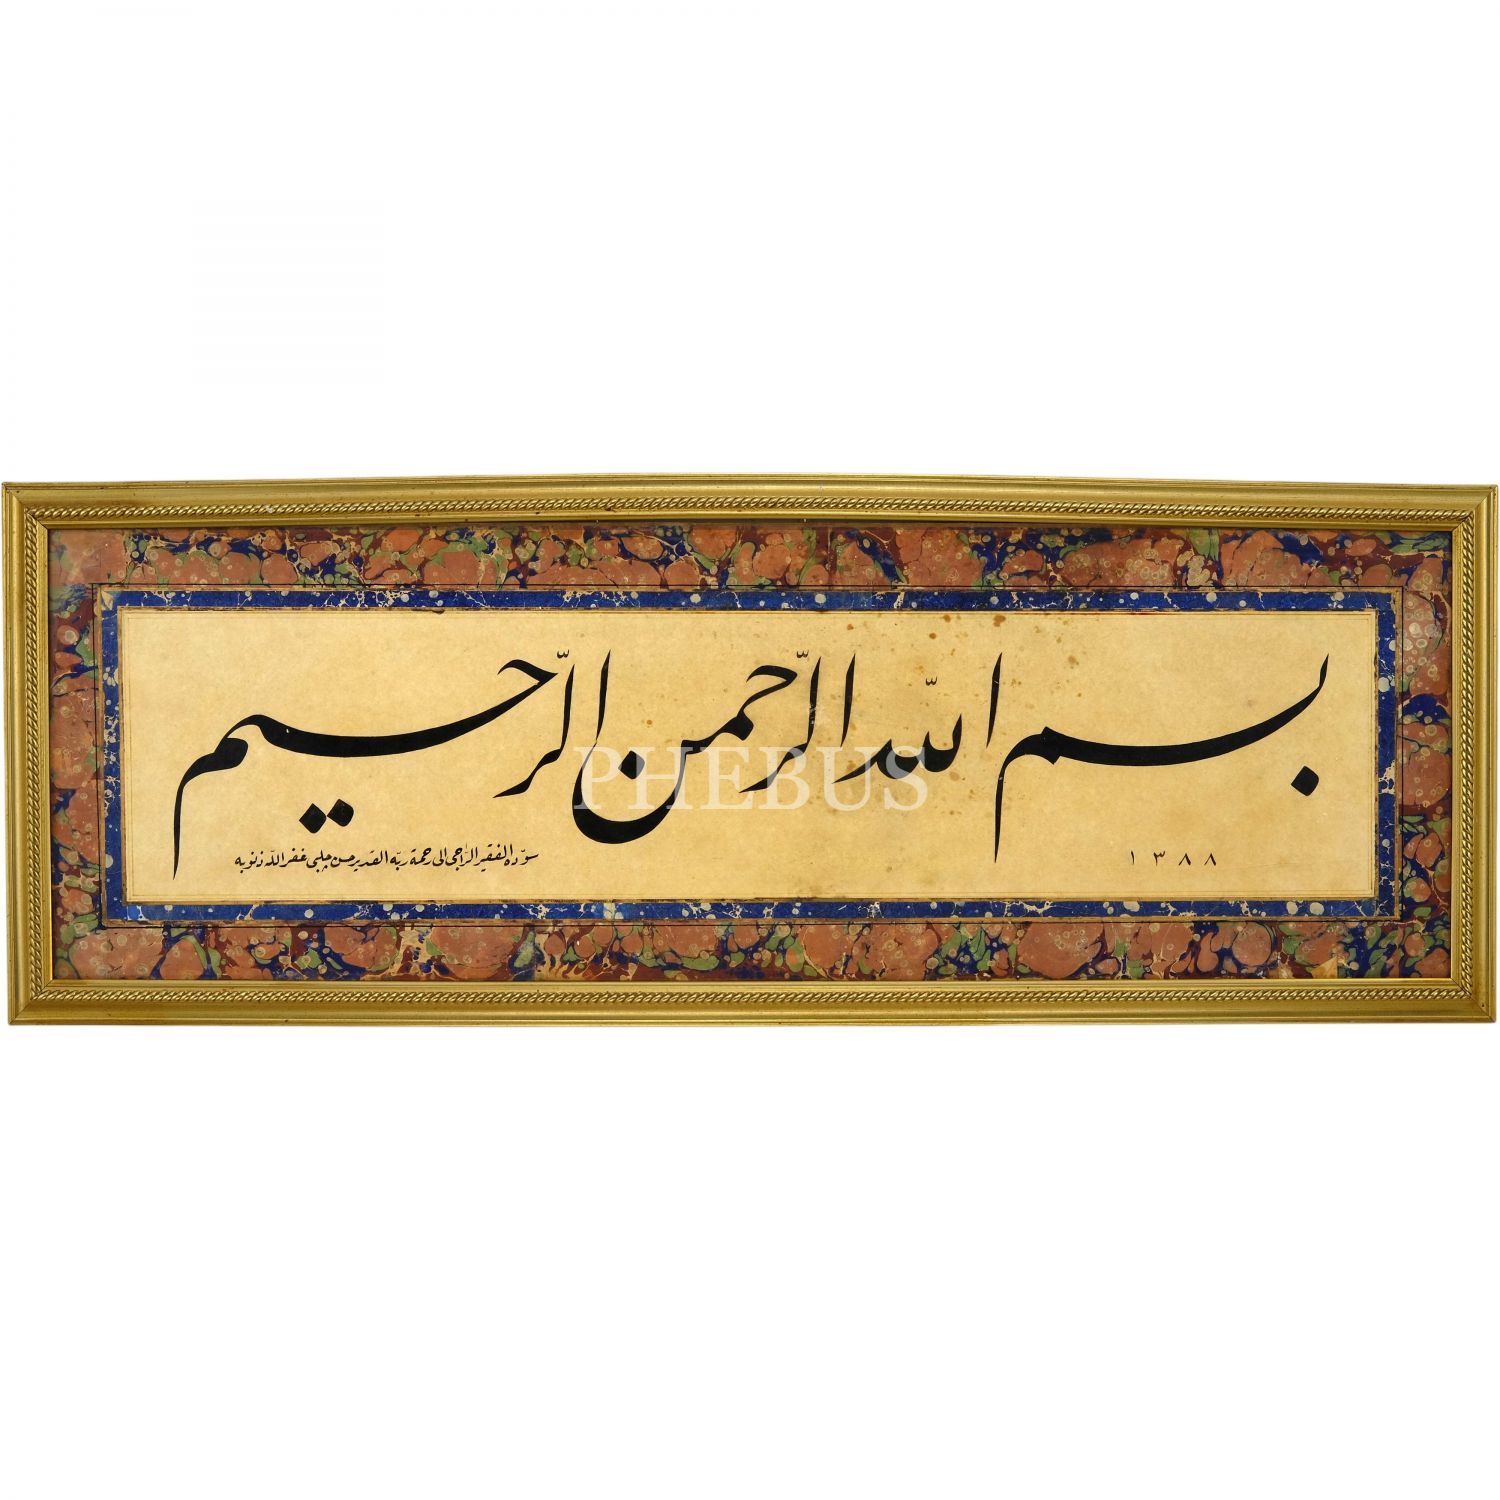 بسم الله الرّحمن الرّحيم
PHEBUS
سوّده الفقير الرّاجى الى رحمة ربّه القدير حسن چلبى غفر الله ذنوبه
١٣٨٨